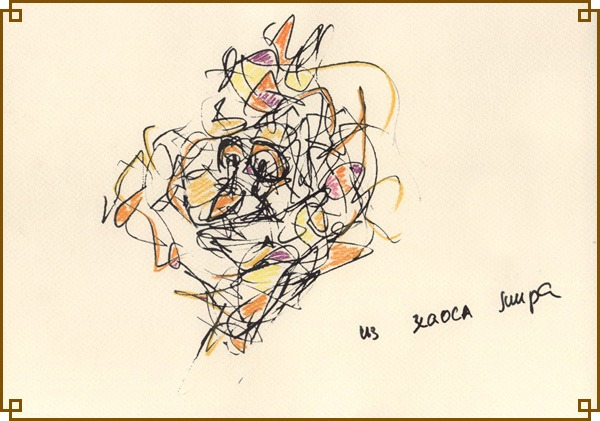 из хаоса мира